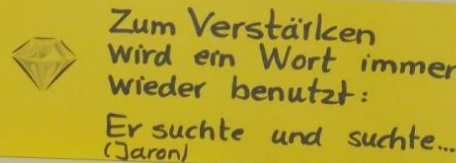 Zum Verstärken
wird ein Wort immer
wieder benutzt:
Er suchte und suchte...
(Jaron)